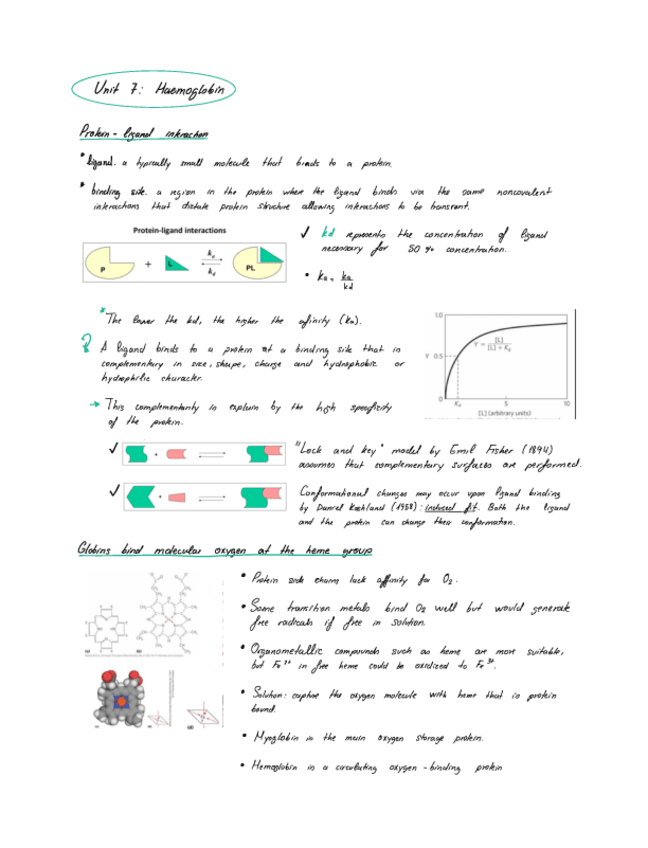 Unit 7: Haemoglobin
Protein - ligand interaction
* ligand. a typically small molecule that binds to a protein.
* binding site. a region in the protein where the ligand binds via the same noncovalent
interactions that dictate protein structure allowing interactions to be transient.
Protein-ligand interactions
P + L PL
✓ kd represents the concentration of ligand
necessary for 50 % concentration.
• Ka =
* The lower the kd, the higher the afinity (Ka).
A ligand binds to a protein at a binding site that is
complementary in size, shape, charge and hydrophobic or
hydrophilic character.
→ This complementarity is explain by the high specificity
of the protein.
1.0
Y 0.5
0
Y = [L] / [L] + Kd
Kd 5 10
[L] (arbitrary units)
✓ "Lock and key" model by Emil Fisher (1894)
assumes that complementary surfaces are preformed.
✓ Conformational changes may occur upon ligand binding
by Daniel Koshland (1958): induced fit. Both the ligand
and the protein can change their conformation.
Globins bind molecular oxygen at the heme group
• Protein side chains lack affinity for O2.
• Some transition metals bind O2 well but would generate
free radicals if free in solution.
• Organometallic compounds such as heme are more suitable,
but Fe2+ in free heme could be oxidized to Fe3+.
• Solution: capture the oxygen molecule with heme that is protein
bound.
• Myoglobin is the main oxygen storage protein.
• Hemoglobin is a circulating oxygen - binding protein